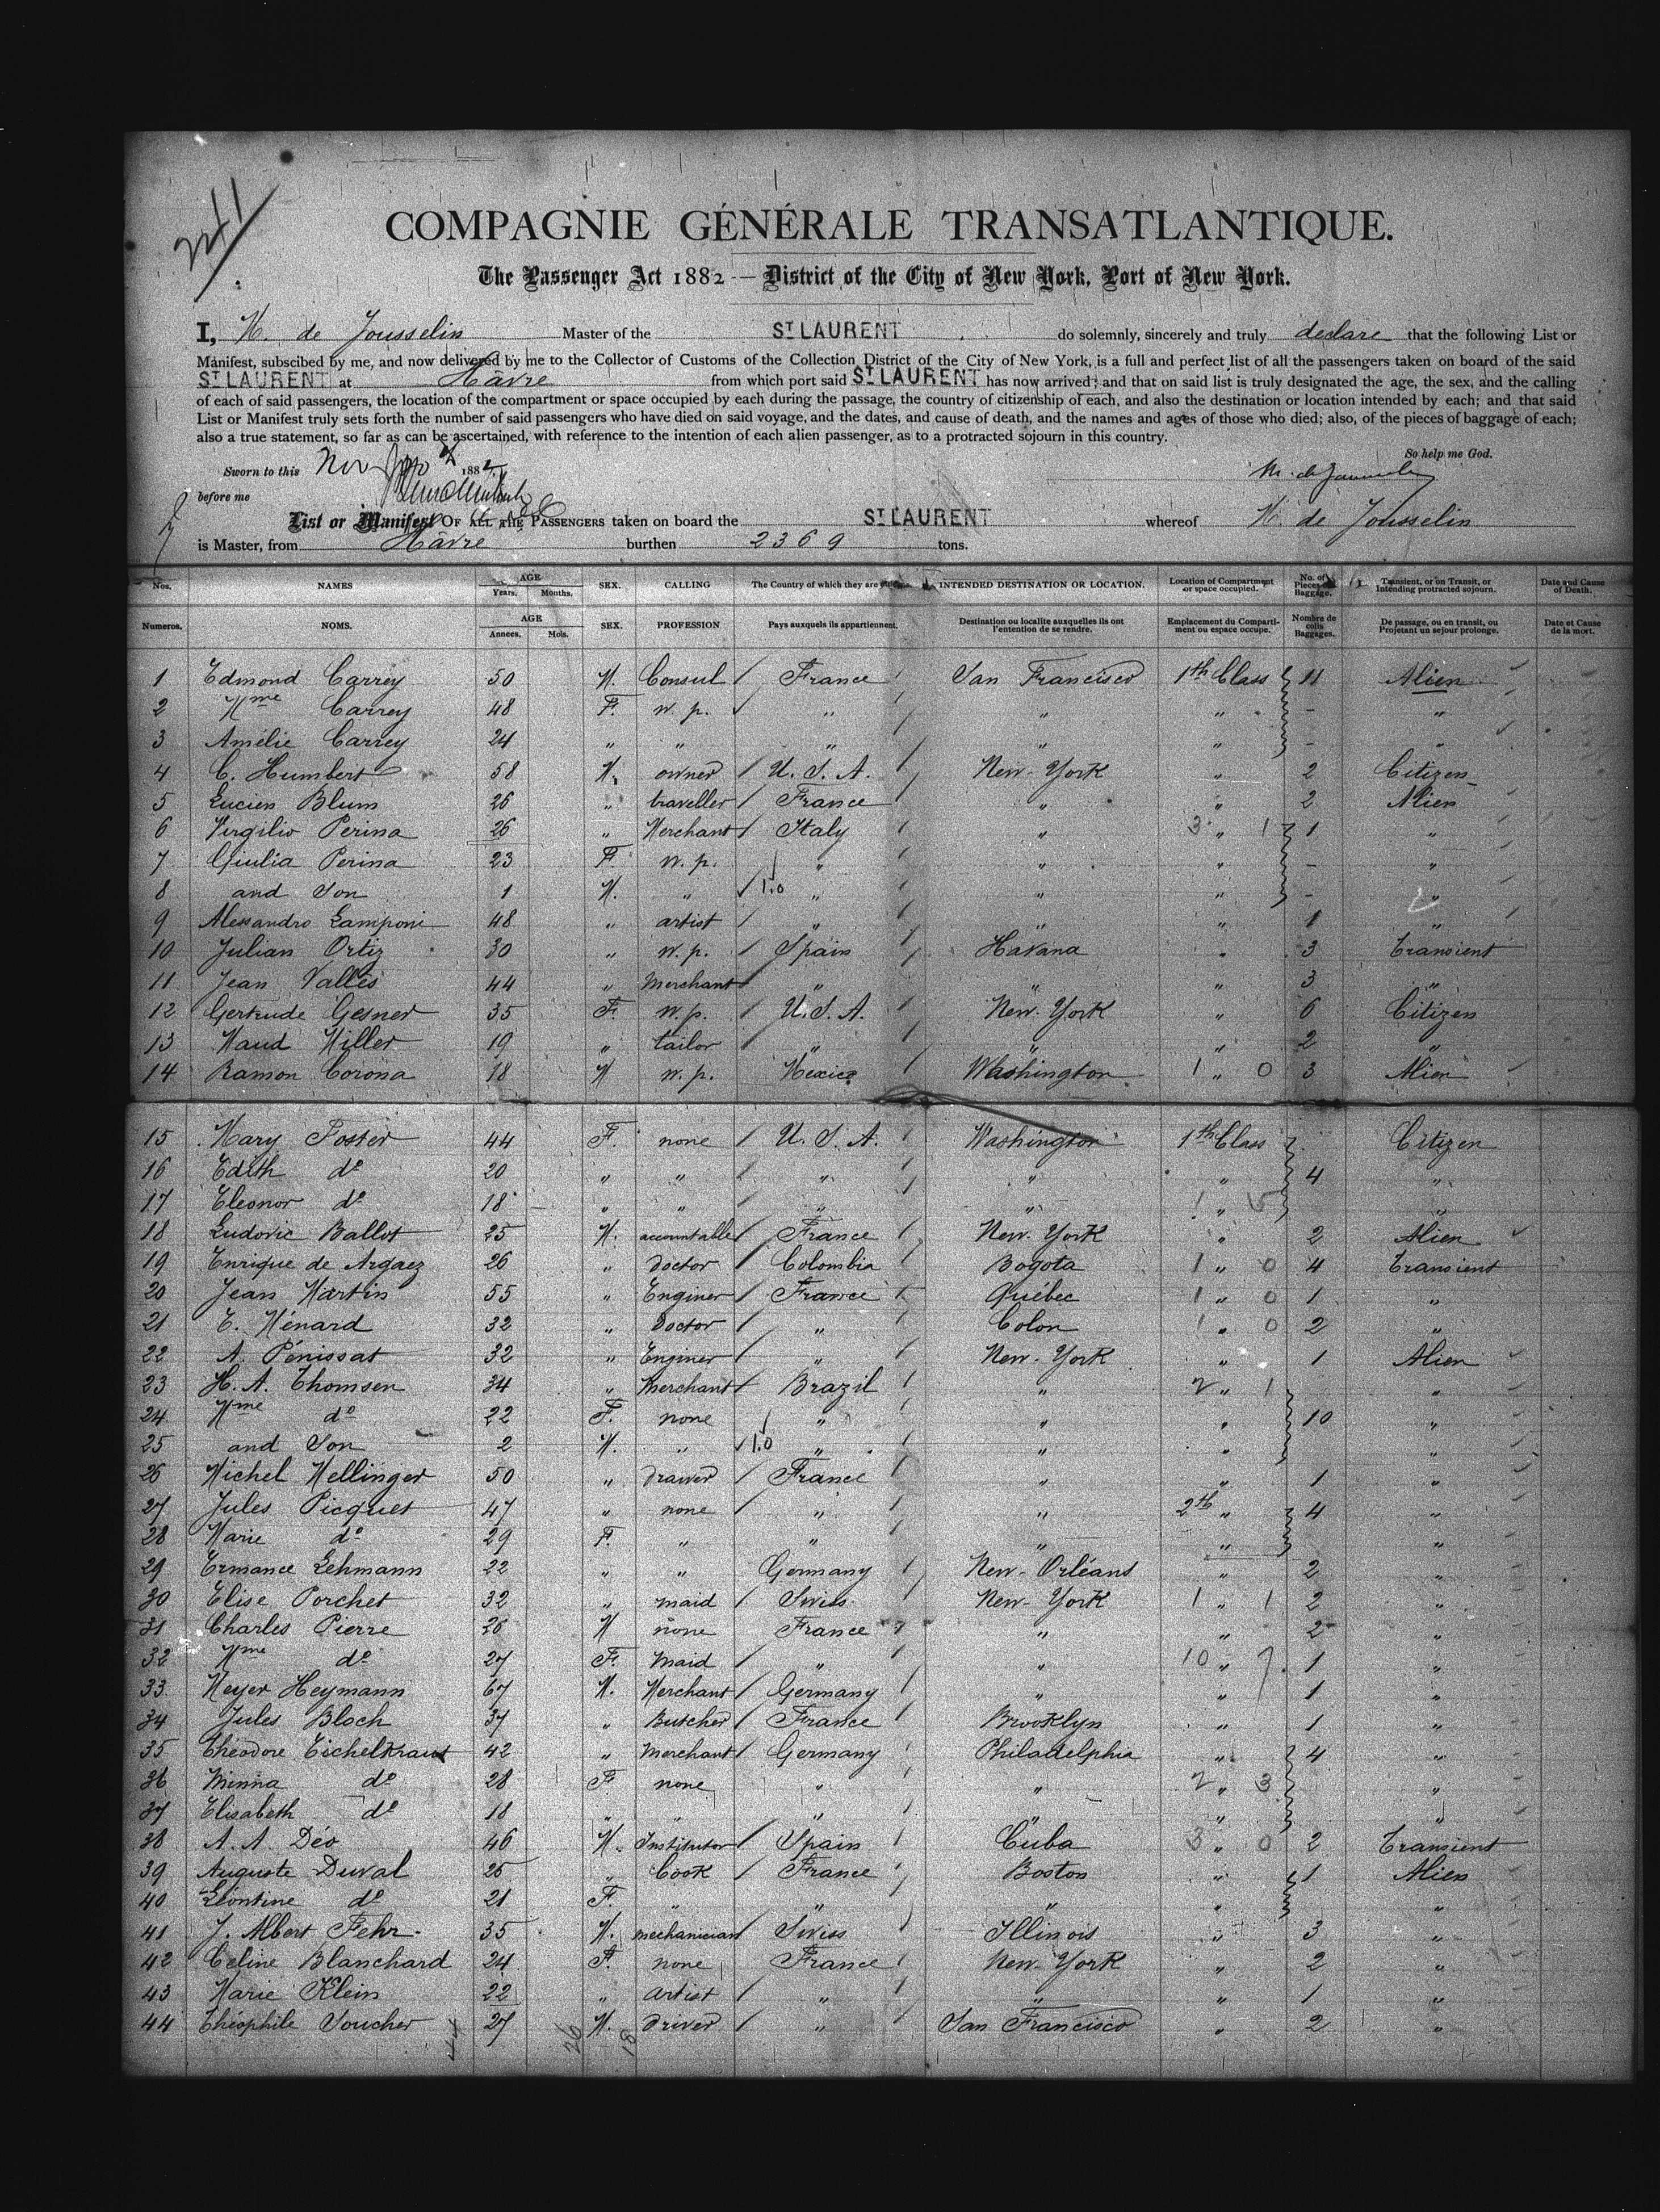 2241
COMPAGNIE GÉNÉRALE TRANSATLANTIQUE.
The Passenger Act 1882 — District of the City of New York, Port of New York.
I, M. de Jousselin Master of the ST LAURENT do solemnly, sincerely and truly declare that the following List or
Manifest, subscibed by me, and now delivered by me to the Collector of Customs of the Collection District of the City of New York, is a full and perfect list of all the passengers taken on board of the said
ST LAURENT at Hâvre from which port said ST LAURENT has now arrived; and that on said list is truly designated the age, the sex, and the calling
of each of said passengers, the location of the compartment or space occupied by each during the passage, the country of citizenship of each, and also the destination or location intended by each; and that said
List or Manifest truly sets forth the number of said passengers who have died on said voyage, and the dates, and cause of death, and the names and ages of those who died; also, of the pieces of baggage of each;
also a true statement, so far as can be ascertained, with reference to the intention of each alien passenger, as to a protracted sojourn in this country.
So help me God.
Sworn to this Nov 1882
before me
List or Manifest OF ALL THE PASSENGERS taken on board the ST LAURENT whereof M. de Jousselin
is Master, from Hâvre burthen 2369 tons.
Nos. NAMES AGE Years. Months. SEX. CALLING The Country of which they are INTENDED DESTINATION OR LOCATION. Location of Compartment or space occupied. No. of Pieces Baggage. Transient, or on Transit, or Intending protracted sojourn. Date and Cause of Death.
Numeros. NOMS. AGE Annees. Mois. SEX. PROFESSION Pays auxquels ils appartiennent. Destination ou localite auxquelles ils ont l'entention de se rendre. Emplacement du Compartiment ou espace occupe. Nombre de colis Baggages. De passage, ou en transit, ou Projetant un sejour prolonge. Date et Cause de la mort.
1 Edmond Carrey 50 M. Consul France San Francisco 1th Class 11 Alien
2 Mme Carrey 48 F. w. p. " " " - "
3 Amélie Carrey 24 " " " " " - "
4 C. Humbert 58 M. owner U. S. A. New-York " 2 Citizen
5 Lucien Blum 26 " traveller France " " 2 Alien
6 Virgilio Perina 26 " Merchant Italy " 3 " 1 1 "
7 Giulia Perina 23 F w. p. " " " - "
8 and Son 1 M. " 1.0 " " " - "
9 Alessandro Lamponi 48 " artist " " " 1 "
10 Julian Ortiz 30 " w. p. Spain Havana " 3 transient
11 Jean Vallès 44 " Merchant " " " 3 "
12 Gertrude Gesner 35 F. w. p. U. S. A. New-York " 6 Citizen
13 Maud Miller 19 " tailor " " " 2 "
14 Ramon Corona 18 M w. p. Mexico Washington 1 " 0 3 Alien
15 Mary Foster 44 F. none U. S. A. Washington 1th Class Citizen
16 Edith do 20 " " " " " 4 "
17 Eleonor do 18 " " " " 1 " 5 "
18 Ludovic Ballot 25 M. accountable France New-York " 2 Alien
19 Enrique de Argaez 26 " doctor Colombia Bogota 1 " 0 4 transient
20 Jean Martin 55 " Enginer France Québec 1 " 0 1 "
21 E. Ménard 32 " Doctor " Colon 1 " 0 2 "
22 A. Pénissat 32 " Enginer " New-York " 1 Alien
23 H. A. Thomsen 34 " Merchant Brazil " 2 " 1 "
24 Mme do 22 F. none " " " 10 "
25 and Son 2 M. " 1.0 " " " "
26 Michel Mellinger 50 " drawer France " " 1 "
27 Jules Picquet 47 " none " " 2th " 4 "
28 Marie do 29 F. " " " " "
29 Ermance Lehmann 22 " " Germany New-Orléans " 2 "
30 Elise Porchet 32 " maid Swiss New-York 1 " 1 2 "
31 Charles Pierre 26 M none France " " 2 "
32 Mme do 27 F. Maid " " 10 " 7 1 "
33 Meyer Heymann 67 M. Merchant Germany " " 1 "
34 Jules Bloch 37 " Butcher France Brooklyn " 1 "
35 Théodore Eichelkraut 42 " Merchant Germany Philadelphia " 4 "
36 Minna do 28 F none " " 2 " 3 "
37 Elisabeth do 18 " " " " " "
38 A. A. Déo 46 M. Institutor Spain Cuba 3 " 0 2 Transient
39 Auguste Duval 25 " Cook France Boston " 1 Alien
40 Léontine do 21 F. " " " " "
41 J. Albert Fehr 35 M. mechanician Swiss Illinois " 3 "
42 Céline Blanchard 24 F. none France New-York " 2 "
43 Marie Klein 22 " artist " " " 1 "
44 Théophile Soucher 27 M. driver " San Francisco " 2 "
44 26 18